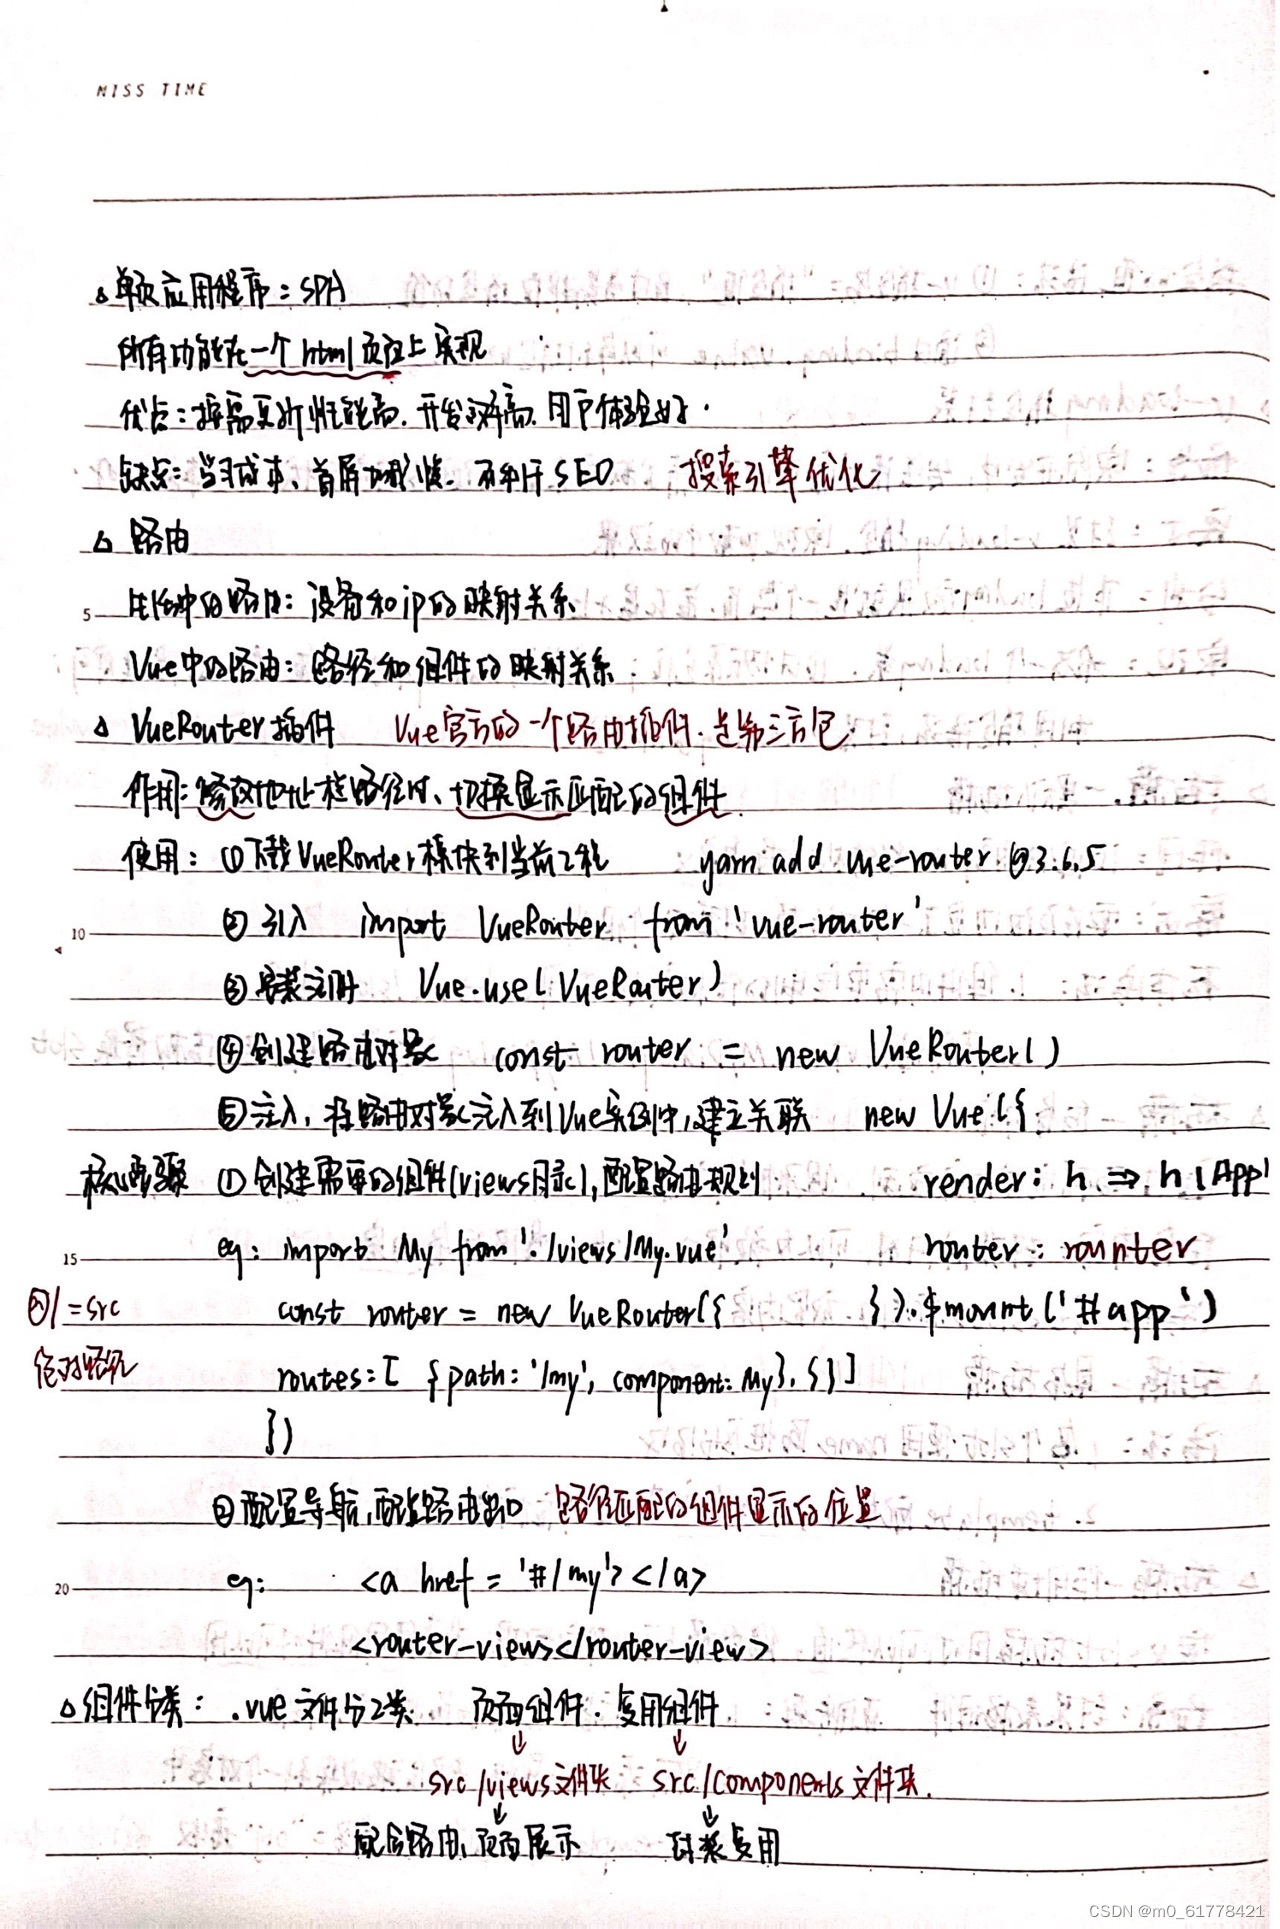 MISS TIME
△ 单页应用程序：SPA
所有功能在一个html页面上实现
优点：按需更新性能高、开发效率高、用户体验好.
缺点：学习成本、首屏加载慢、不利于SEO 搜索引擎优化
△ 路由
5 生活中的路由：设备和ip的映射关系
Vue中的路由：路径和组件的映射关系
△ VueRouter插件 Vue官方的一个路由插件，是第三方包
作用：修改地址栏路径时、切换显示匹配的组件
使用：①下载VueRouter模块到当前工程 yarn add vue-router@3.6.5
10 ②引入 import VueRouter from 'vue-router'
③安装注册 Vue.use(VueRouter)
④创建路由对象 const router = new VueRouter()
⑤注入，将路由对象注入到Vue实例中，建立关联 new Vue({
核心步骤 ①创建需要的组件(views目录)，配置路由规则 render: h => h(App)
15 eg: import My from './views/My.vue' router: rounter
@/=src const router = new VueRouter({ }).$mount('#app')
绝对路径 routes:[ {path:'/my', component: My}, {}]
})
②配置导航，配置路由出口 路径匹配的组件显示的位置
20 eg: <a href = '#/my'></a>
<router-views</router-view>
△组件分类：.vue文件分2类 页面组件、复用组件
↓ ↓
src/views文件夹 src/components文件夹.
↓ ↓
配合路由、页面展示 封装复用
CSDN @m0_61778421